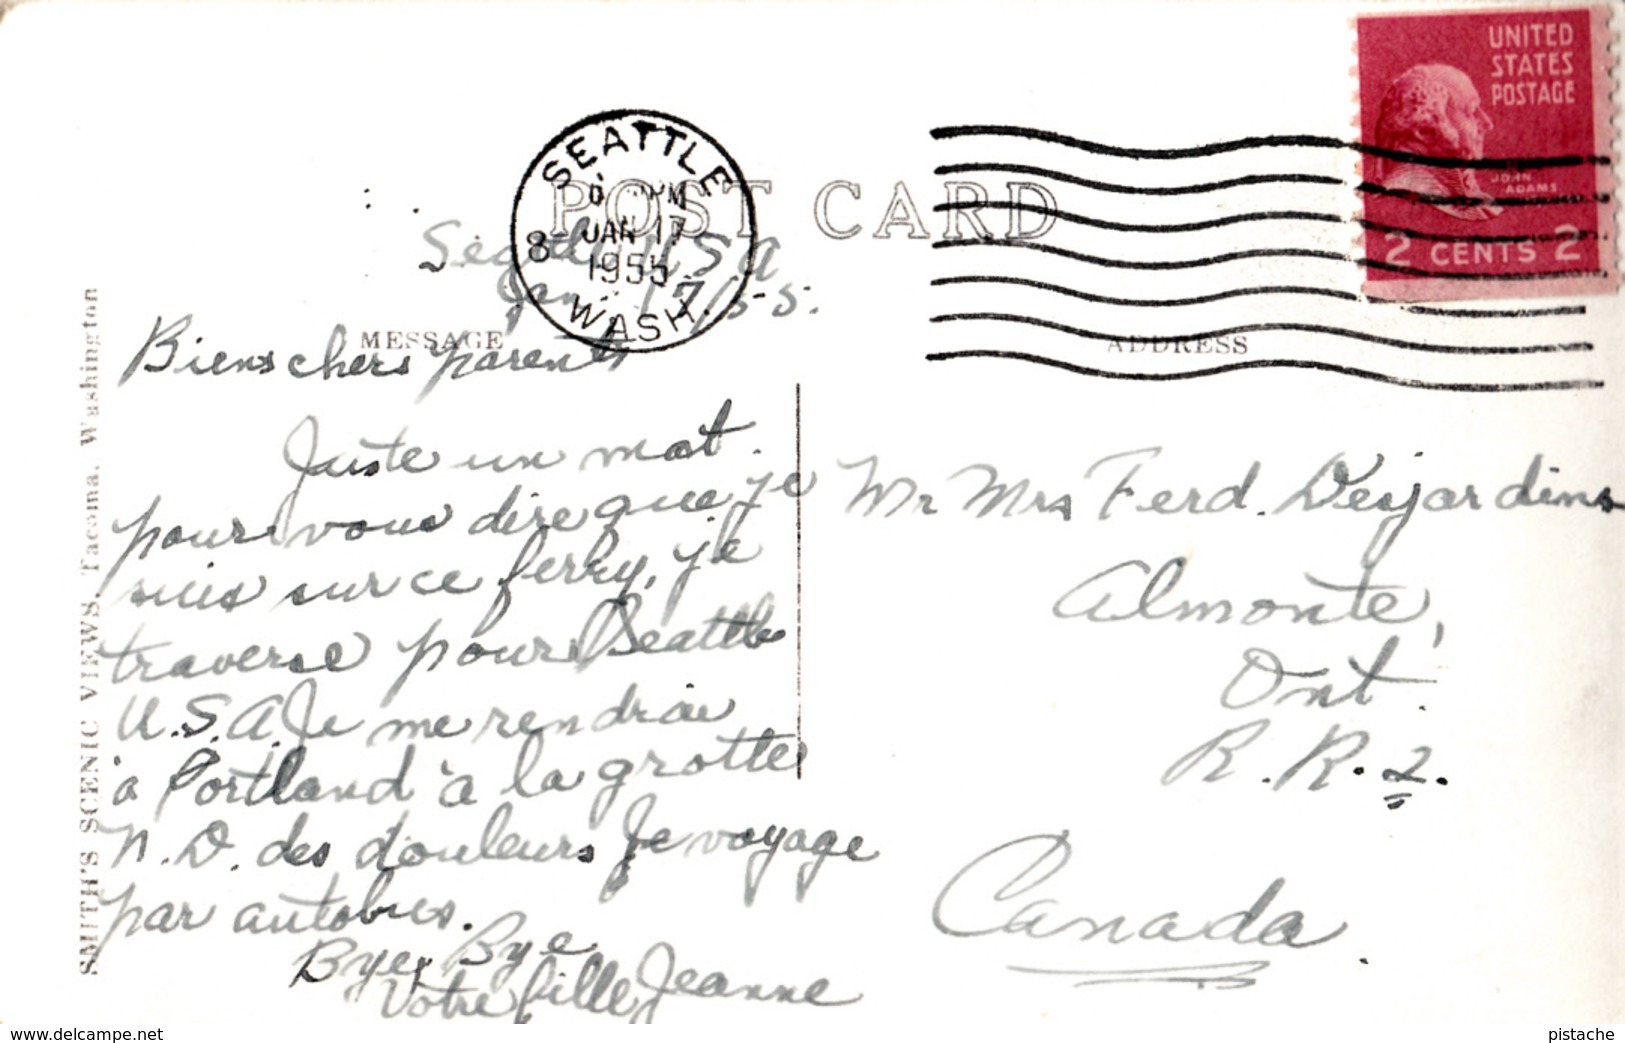 UNITED
STATES
POSTAGE
JOHN
ADAMS
2 CENTS 2
SEATTLE
PM
JAN 17
8
1955
WASH.
POST CARD
Seattle U.S.A
Jan. 17/55.
MESSAGE
ADDRESS
SMITH'S SCENIC VIEWS, Tacoma, Washington
Biens chers parents
Juste un mot
pour vous dire que je
suis sur ce ferry, je
traverse pour Seattle
U.S.A. Je me rendrai
à Portland à la grotte
N.D. des douleurs Je voyage
par autobus.
Bye Bye
Votre fille Jeanne
Mr Mrs Ferd. Desjardins
Almonte,
Ont.
R.R.2.
Canada
www.delcampe.net
pistache